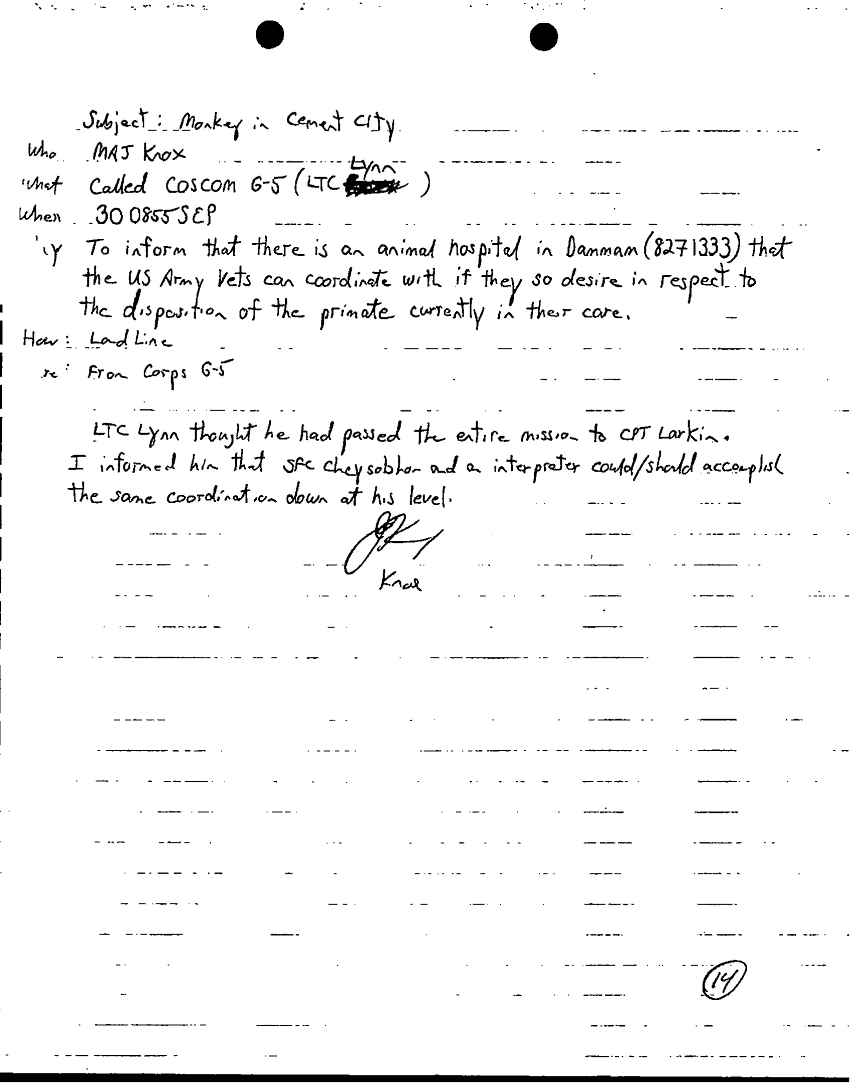 Subject: Monkey in Cement City
Who MAJ Knox
what Called COSCOM G-5 (LTC Lynn)
When 30 0855 SEP
'y To inform that there is an animal hospital in Dammam (8271333) that
the US Army Vets can coordinate with if they so desire in respect to
the disposition of the primate currently in their care.
How: Land Line
re: From Corps G-5
LTC Lynn thought he had passed the entire mission to CPT Larkin.
I informed him that SFC Cheysobhon and an interpreter could/should accomplish
the same coordination down at his level.
Knox
14